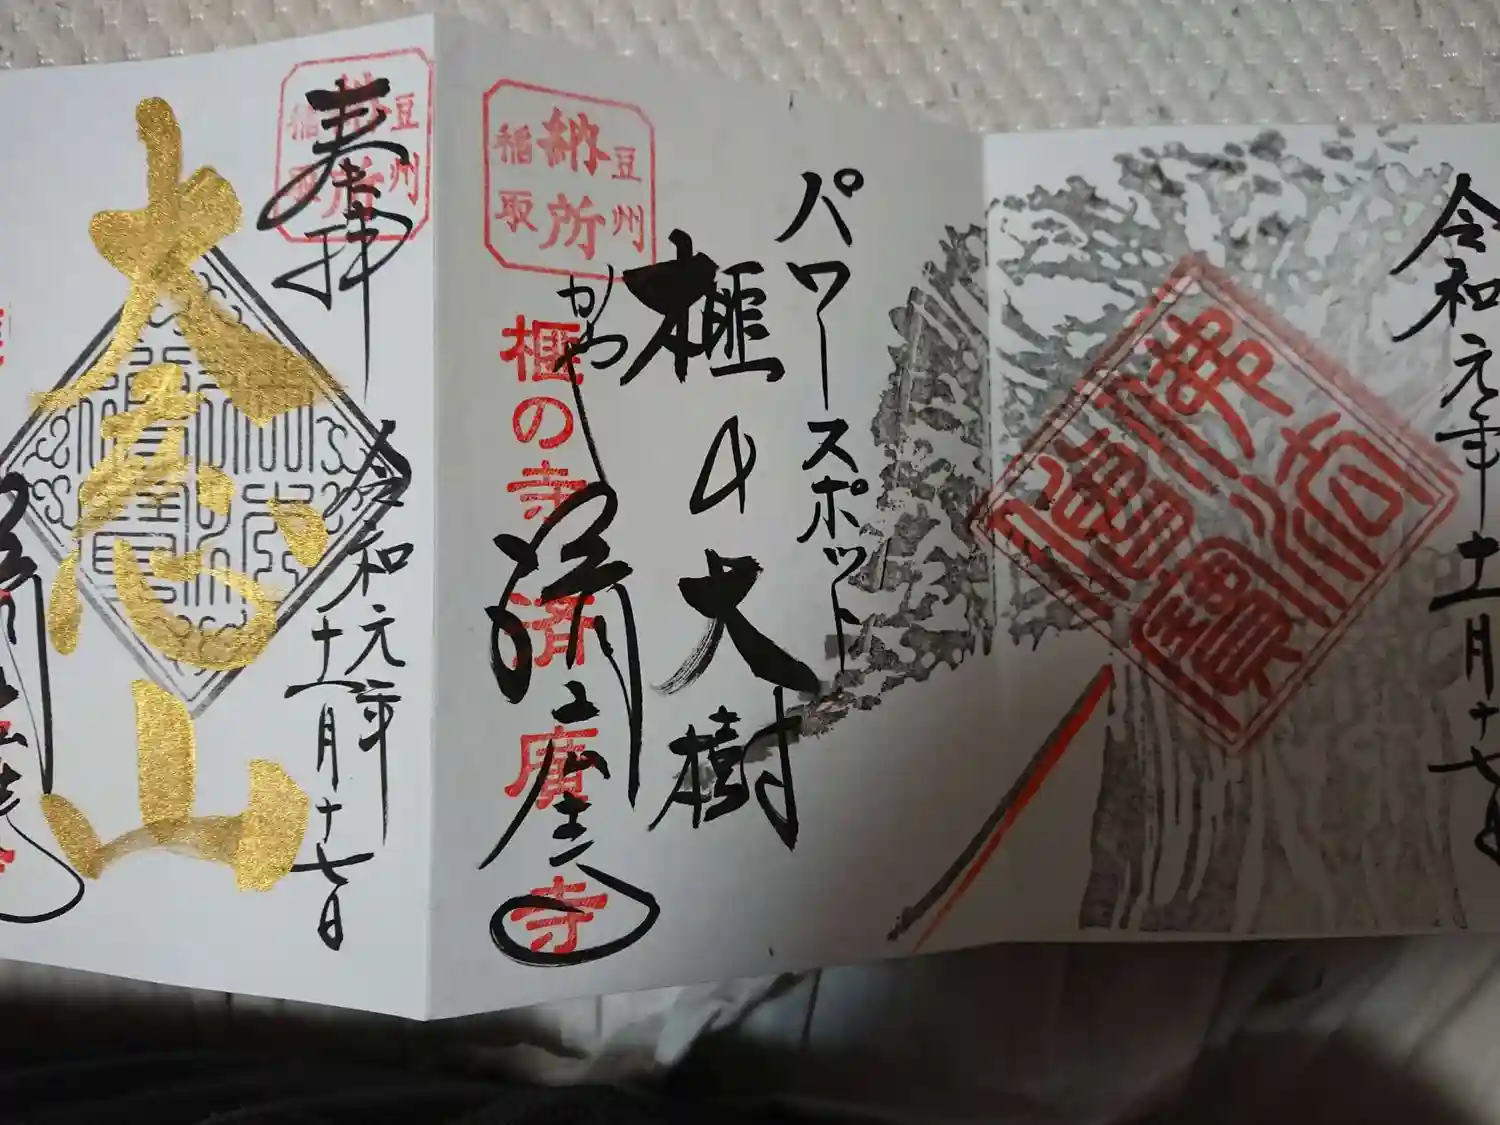 令和元年十一月十七日
パワースポット
榧の大樹
かや
豆州
納所
稲取
榧の寺
済廣寺
済廣寺
佛法僧寶
奉拝
豆州
納所
稲取
令和元年
十一月十七日
大慈山